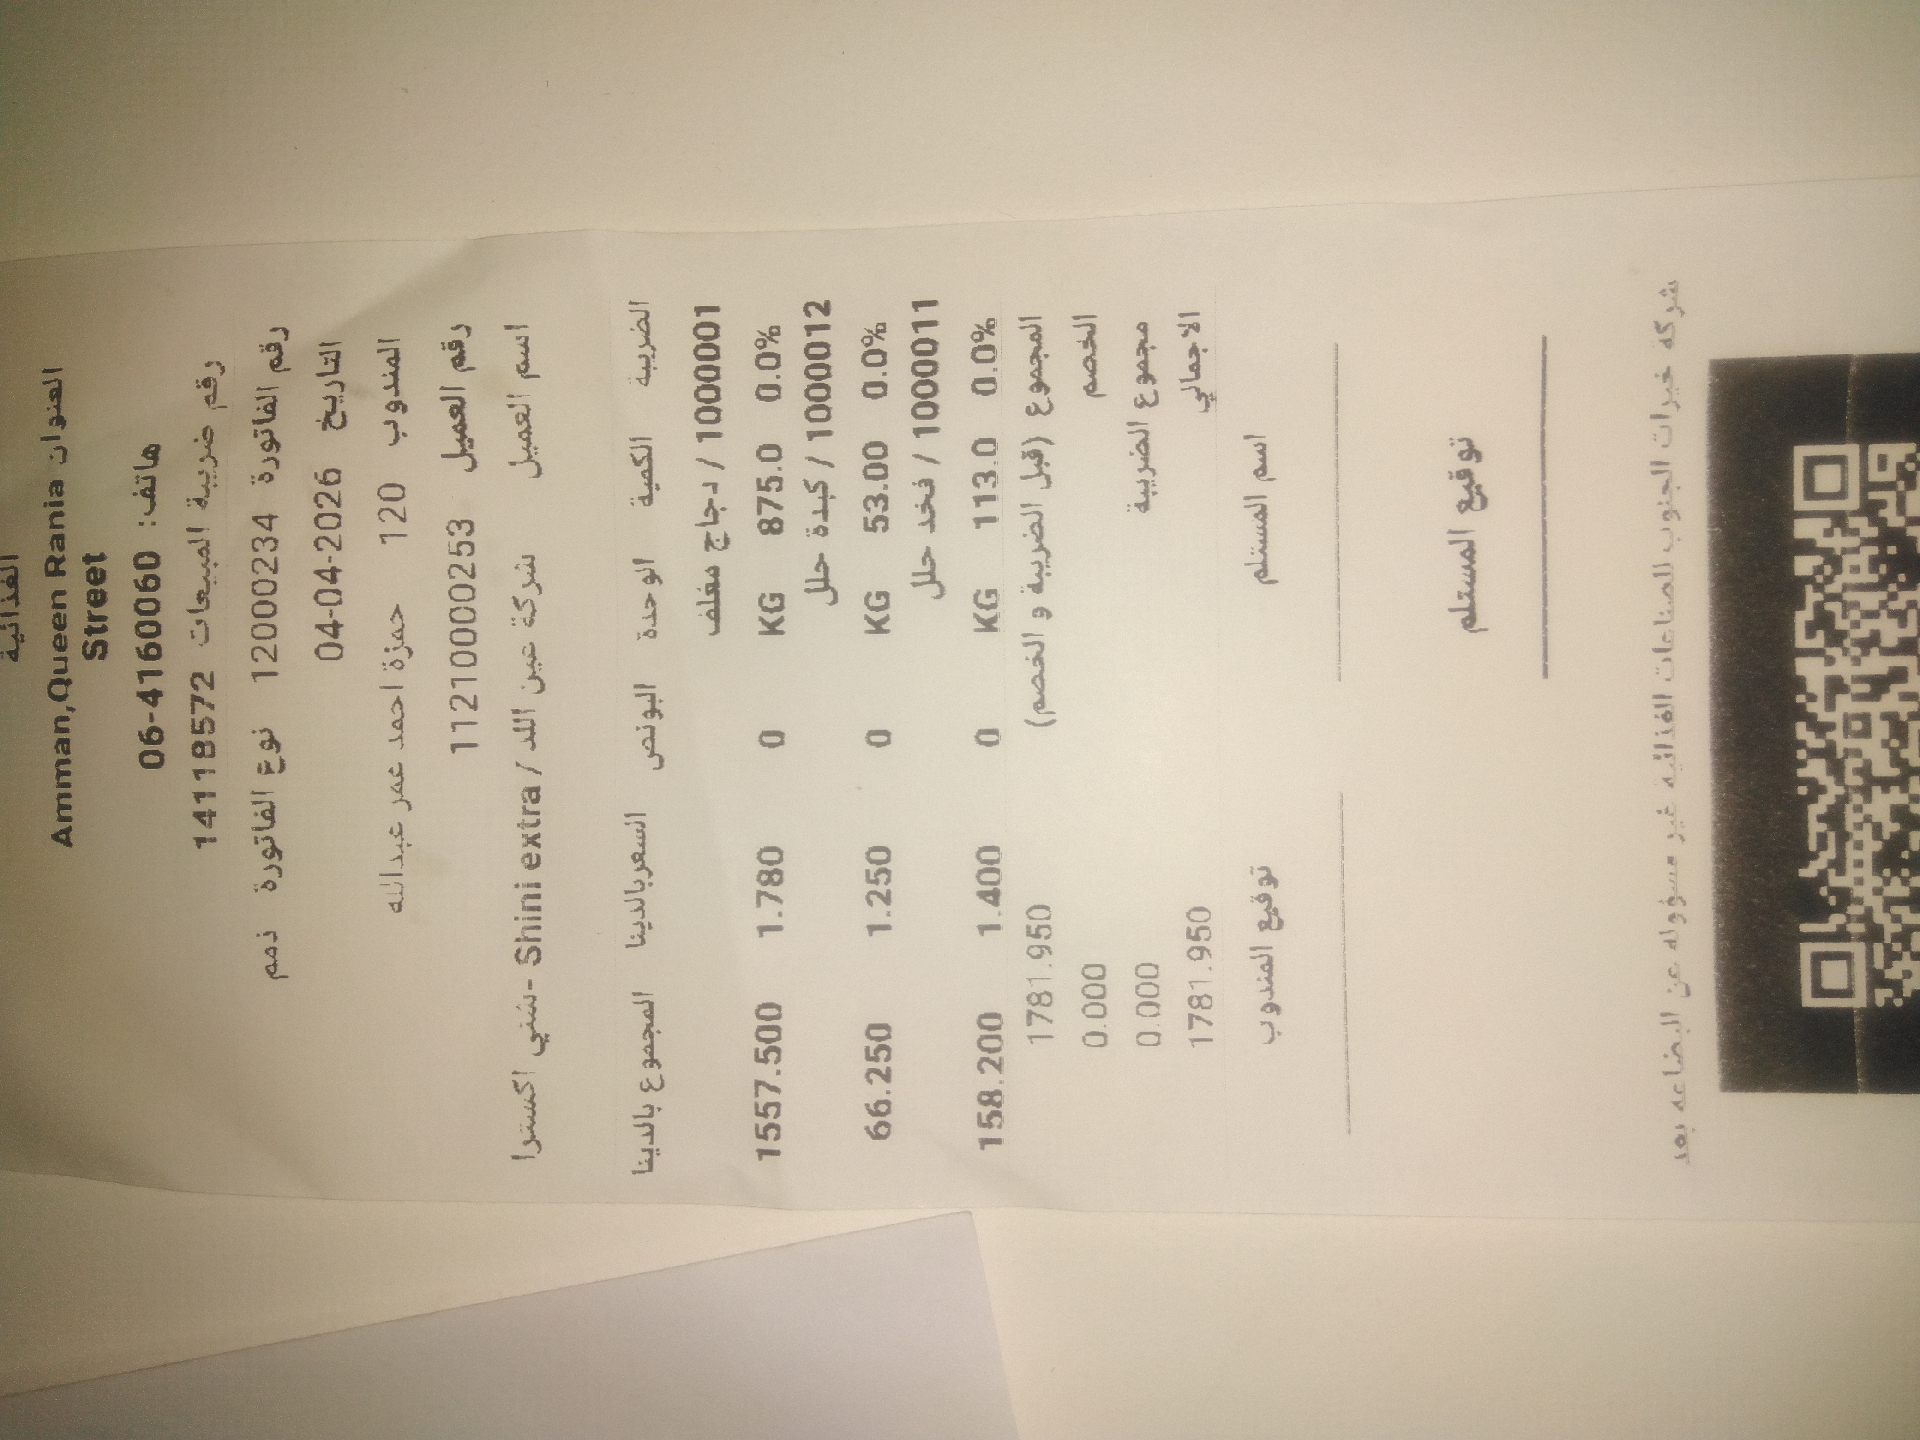 الغذائية
العنوان Amman,Queen Rania
Street
هاتف: 06-4160060
رقم ضريبة المبيعات 14118572
رقم الفاتورة 12000234 نوع الفاتورة ذمم
التاريخ 04-04-2026
المندوب 120 حمزة احمد عمر عبدالله
رقم العميل 1121000253
اسم العميل شركة عين اللد / Shini extra -شني اكسترا
الضريبة الكمية الوحدة البونص السعربالدينا المجموع بالدينا
1000001 / دجاج مغلف
0.0% 875.0 KG 0 1.780 1557.500
1000012 / كبدة حلل
0.0% 53.00 KG 0 1.250 66.250
1000011 / فخد حلل
0.0% 113.0 KG 0 1.400 158.200
المجموع (قبل الضريبة و الخصم) 1781.950
الخصم 0.000
مجموع الضريبة 0.000
الاجمالي 1781.950
اسم المستلم توقيع المندوب
توقيع المستلم
شركة خيرات الجنوب للصناعات الغذائيه غير مسؤوله عن البضاعه بعد